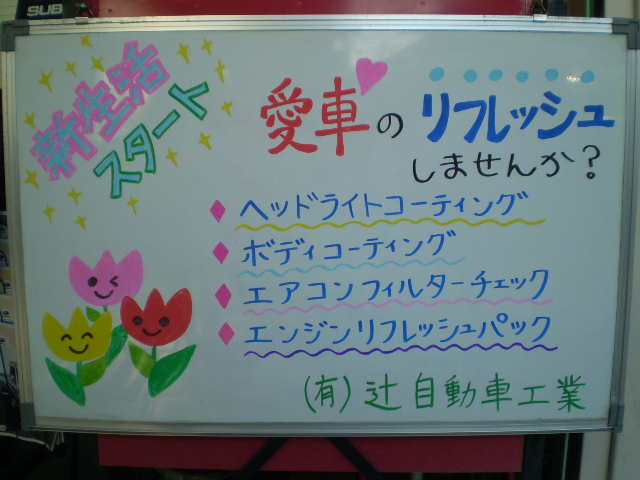 SUB
新生活
スタート
愛車の リフレッシュ
しませんか?
♦ ヘッドライトコーティング
♦ ボディコーティング
♦ エアコンフィルターチェック
♦ エンジンリフレッシュパック
(有) 辻自動車工業